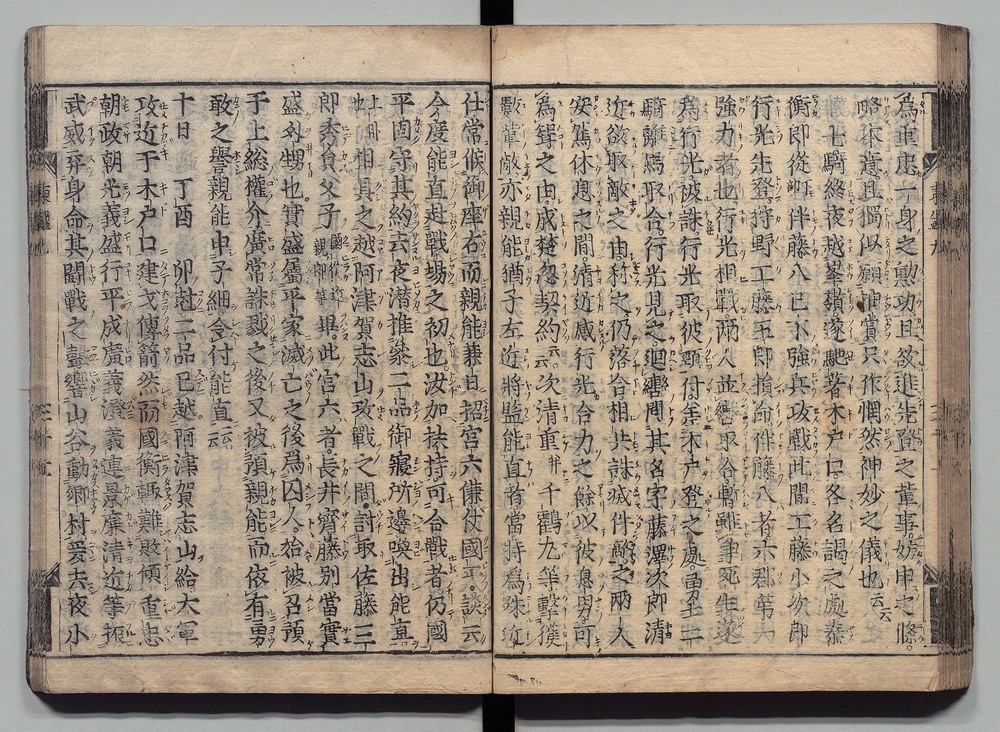 為重忠一身之勲功且欲進先登之輩事妨申之條
略本意且獨似願抽賞只作惘然神妙之儀也云云
七騎終夜越峯嶺遂馳著木戸口各名謁之處泰
衡即從部伴藤八已下強兵攻戰此間工藤小次郎
行光先登狩野工藤五郎損命伴藤八者六郡第一
強力者也行光相戰兩人並轡取合暫雖爭死生遂
為行光被誅行光取彼頸付鳥付差木戸登之處勇士二
騎離馬取合行光見之廻轡問其名字藤澤次郎清
近欲取敵之由稱之仍落合相共誅滅件敵之兩人
安駕休息之間清近感行光合力之餘以彼息男可
為聟之由成楚忽契約云云次清重并千鶴丸等擊獲
數輩敵亦親能猶子左近將監能直者當時為殊近
仕常候御座右而親能兼日招宮六傔仗國平談云
今度能直赴戰場之初也汝加扶持可合戰者仍國
平固守其約去夜潛推參二品御寢所邊喚出能直
上卧也相具之越阿津賀志山攻戰之間討取佐藤三
秀員父子國衡近親郎等畢此宮六者長井齊藤別當實
盛外甥也實盛屬平家滅亡之後為囚人始被召預
于上総權介廣常誅戮之後又被預親能而依有勇
敢之譽親能申子細令付能直云云
十日 丁酉 卯尅二品已越阿津賀志山給大軍
攻近于木戸口建戈傳箭然而國衡輙難敗傾重忠
朝政朝光義盛行平成廣義澄義連景廉清近等振
武威弃身命其鬪戰之聲響山谷動郷村爰去夜小